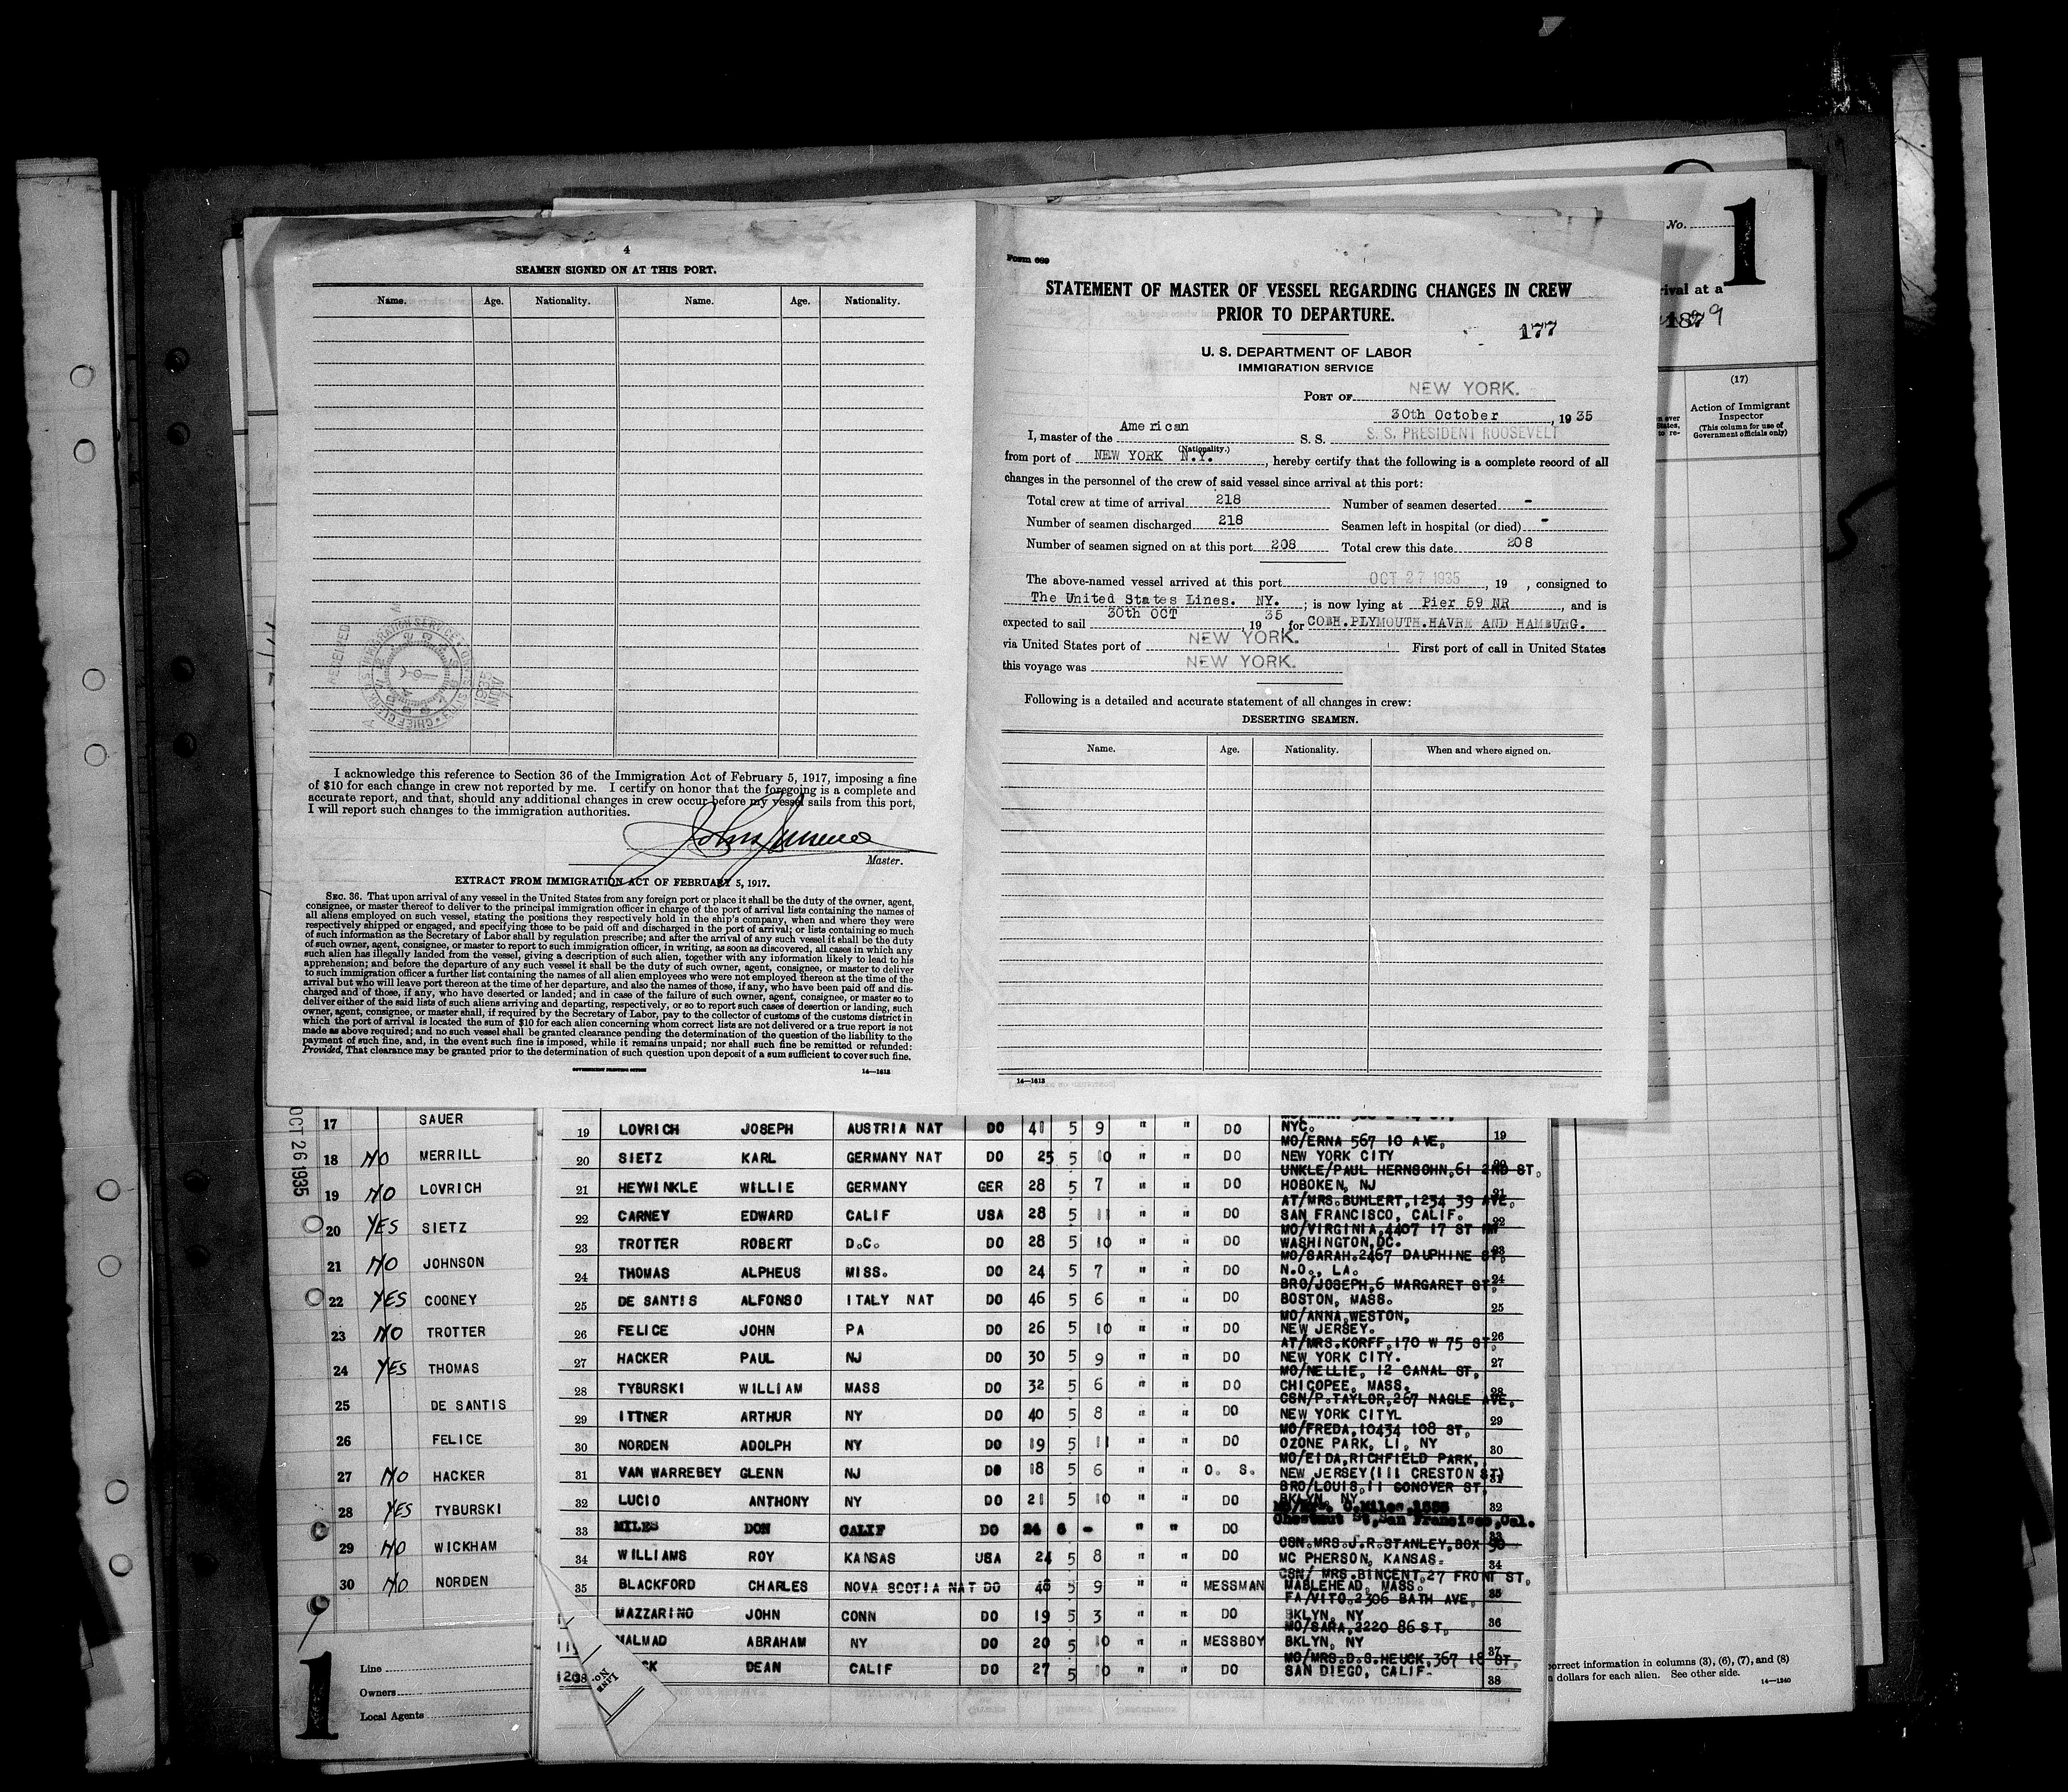 4
SEAMEN SIGNED ON AT THIS PORT.
Name. Age. Nationality. Name. Age. Nationality.
RECEIVED
1935 NOV
I acknowledge this reference to Section 36 of the Immigration Act of February 5, 1917, imposing a fine
of $10 for each change in crew not reported by me. I certify on honor that the foregoing is a complete and
accurate report, and that, should any additional changes in crew occur before my vessel sails from this port,
I will report such changes to the immigration authorities.
Master.
EXTRACT FROM IMMIGRATION ACT OF FEBRUARY 5, 1917.
SEC. 36. That upon arrival of any vessel in the United States from any foreign port or place it shall be the duty of the owner, agent,
consignee, or master thereof to deliver to the principal immigration officer in charge of the port of arrival lists containing the names of
all aliens employed on such vessel, stating the positions they respectively hold in the ship's company, when and where they were
respectively shipped or engaged, and specifying those to be paid off and discharged in the port of arrival; or lists containing so much
of such information as the Secretary of Labor shall by regulation prescribe; and after the arrival of any such vessel it shall be the duty
of such owner, agent, consignee, or master to report to such immigration officer, in writing, as soon as discovered, all cases in which any
such alien has illegally landed from the vessel, giving a description of such alien, together with any information likely to lead to his
apprehension; and before the departure of any such vessel it shall be the duty of such owner, agent, consignee, or master to deliver
to such immigration officer a further list containing the names of all alien employees who were not employed thereon at the time of the
arrival but who will leave port thereon at the time of her departure, and also the names of those, if any, who have been paid off and dis-
charged and of those, if any, who have deserted or landed; and in case of the failure of such owner, agent, consignee, or master so to
deliver either of the said lists of such aliens arriving and departing, respectively, or so to report such cases of desertion or landing, such
owner, agent, consignee, or master shall, if required by the Secretary of Labor, pay to the collector of customs of the customs district in
which the port of arrival is located the sum of $10 for each alien concerning whom correct lists are not delivered or a true report is not
made as above required; and no such vessel shall be granted clearance pending the determination of the question of the liability to the
payment of such fine, and, in the event such fine is imposed, while it remains unpaid; nor shall such fine be remitted or refunded:
Provided, That clearance may be granted prior to the determination of such question upon deposit of a sum sufficient to cover such fine.
GOVERNMENT PRINTING OFFICE 14—1613
Form 689
STATEMENT OF MASTER OF VESSEL REGARDING CHANGES IN CREW
PRIOR TO DEPARTURE.
177
U. S. DEPARTMENT OF LABOR
IMMIGRATION SERVICE
PORT OF NEW YORK.
30th October, 1935
I, master of the American S. S. S. S. PRESIDENT ROOSEVELT
(Nationality.)
from port of NEW YORK N.Y., hereby certify that the following is a complete record of all
changes in the personnel of the crew of said vessel since arrival at this port:
Total crew at time of arrival 218 Number of seamen deserted -
Number of seamen discharged 218 Seamen left in hospital (or died) -
Number of seamen signed on at this port 208 Total crew this date 208
The above-named vessel arrived at this port OCT 27 1935, 19 , consigned to
The United States Lines. NY.; is now lying at Pier 59 NR, and is
expected to sail 30th OCT, 1935 for COBH.PLYMOUTH.HAVRE AND HAMBURG.
via United States port of NEW YORK. First port of call in United States
this voyage was NEW YORK.
Following is a detailed and accurate statement of all changes in crew:
DESERTING SEAMEN.
Name. Age. Nationality. When and where signed on.
14—1613
No. 1
rival at a
(17)
Action of Immigrant
Inspector
(This column for use of
Government officials only)
OCT 26 1935
17 SAUER
18 NO MERRILL
19 NO LOVRICH
20 YES SIETZ
21 NO JOHNSON
22 YES COONEY
23 NO TROTTER
24 YES THOMAS
25 DE SANTIS
26 FELICE
27 NO HACKER
28 YES TYBURSKI
29 NO WICKHAM
30 NO NORDEN
1
Line
Owners
Local Agents
NYC.
19 LOVRICH JOSEPH AUSTRIA NAT DO 41 5 9 " " DO 19
MO/ERNA 567 10 AVE,
20 SIETZ KARL GERMANY NAT DO 25 5 10 " " DO NEW YORK CITY 20
UNKLE/PAUL HERNSOHN,61 2ND ST,
21 HEYWINKLE WILLIE GERMANY GER 28 5 7 " " DO HOBOKEN, NJ 21
AT/MRS.BUHLERT,1234 39 AVE,
22 CARNEY EDWARD CALIF USA 28 5 11 " " DO SAN FRANCISCO, CALIF. 22
MO/VIRGINIA,4407 17 ST NW
23 TROTTER ROBERT D.C. DO 28 5 10 " " DO WASHINGTON,DC. 23
MO/SARAH.2467 DAUPHINE ST,
24 THOMAS ALPHEUS MISS. DO 24 5 7 " " DO N.O., LA. 24
BRO/JOSEPH,6 MARGARET ST,
25 DE SANTIS ALFONSO ITALY NAT DO 46 5 6 " " DO BOSTON, MASS. 25
MO/ANNA,WESTON,
26 FELICE JOHN PA DO 26 5 10 " " DO NEW JERSEY. 26
AT/MRS.KORFF,170 W 75 ST,
27 HACKER PAUL NJ DO 30 5 9 " " DO NEW YORK CITY. 27
MO/NELLIE, 12 CANAL ST,
28 TYBURSKI WILLIAM MASS DO 32 5 6 " " DO CHICOPEE, MASS. 28
CSN/P.TAYLOR,267 NAGLE AVE,
29 ITTNER ARTHUR NY DO 40 5 8 " " DO NEW YORK CITYL 29
MO/FREDA,10434 108 ST,
30 NORDEN ADOLPH NY DO 19 5 11 " " DO OZONE PARK, LI, NY 30
MO/EIDA,RICHFIELD PARK,
31 VAN WARREBEY GLENN NJ DO 18 5 6 " " O. S. NEW JERSEY(111 CRESTON ST) 31
BRO/LOUIS,11 CONOVER ST,
32 LUCIO ANTHONY NY DO 21 5 10 " " DO BKLYN, NY 32
C.Miles,1885
33 MILES DON CALIF DO 24 6 - " " DO Chestnut St,San Francisco,Cal. 33
CSN.MRS.J.R.STANLEY,BOX 90
34 WILLIAMS ROY KANSAS USA 24 5 8 " " DO MC PHERSON, KANSAS. 34
CSN/ MRS.BINCENT,27 FRONT ST,
35 BLACKFORD CHARLES NOVA SCOTIA NAT DO 46 5 9 " " MESSMAN MABLEHEAD, MASS. 35
FA/VITO.2306 BATH AVE,
MAZZARINO JOHN CONN DO 19 5 3 " " DO BKLYN, NY 36
MO/SARA,2220 86 ST,
MALMAD ABRAHAM NY DO 20 5 10 " " MESSBOY BKLYN, NY 37
MO/MRS.D.S.HEUCK,367 18 ST,
CK DEAN CALIF DO 27 5 10 " " DO SAN DIEGO, CALIF. 38
correct information in columns (3), (6), (7), and (8)
dollars for each alien. See other side.
14—1240